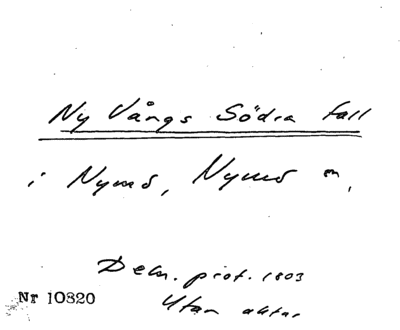 Ny Vångs Södra fall
i Nymö, Nymö sn,
Dekn. prot. 1803
Utan aktnr
Nr 10820